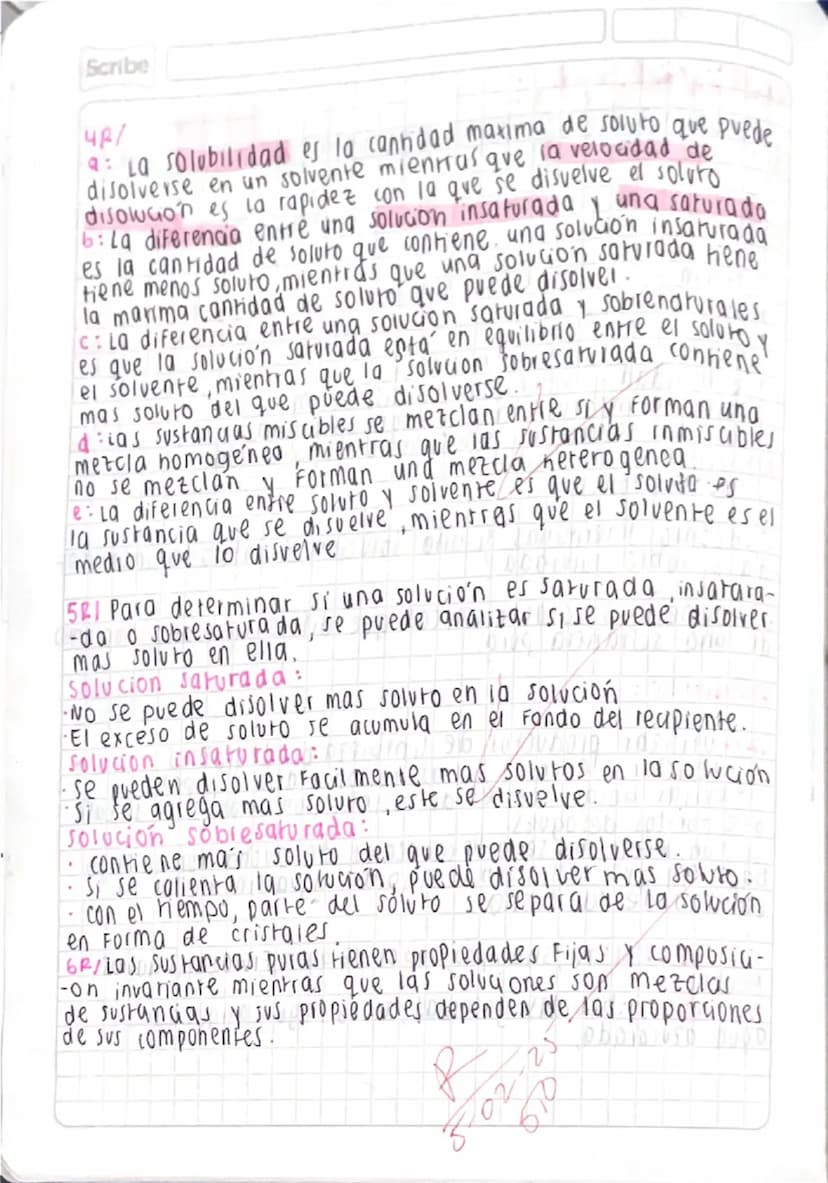 Scribe
4R/
a: La solubilidad es la cantidad maxima de soluto que puede
disolverse en un solvente mientras que la velocidad de
disolución es la rapidez con la que se disuelve el soluto
b: La diferencia entre una solución insaturada y una saturada
es la cantidad de soluto que contiene. una solución insaturada
tiene menos soluto, mientras que una solución saturada tiene
la maxima cantidad de soluto que puede disolver.
c: La diferencia entre una solución saturada y sobrenaturales
es que la solución saturada está en equilibrio entre el soluto y
el solvente, mientras que la solución sobresaturada contiene
mas soluto del que puede disolverse.
d: las sustancias miscibles se mezclan entre si y forman una
mezcla homogénea, mientras que las sustancias inmiscibles
no se mezclan y forman una mezcla heterogenea.
e: La diferencia entre soluto y solvente es que el soluto es
la sustancia que se disuelve, mientras que el solvente es el
medio que lo disuelve
5R/ Para determinar si una solución es saturada, insatara-
-da o sobresaturada, se puede análizar si se puede disolver
mas soluto en ella.
solucion saturada:
·No se puede disolver mas soluto en la solución
·El exceso de soluto se acumula en el Fondo del recipiente.
solución insaturada:
·se pueden disolver Facilmente mas solutos en la solución
·si se agrega mas soluto, este se disuelve.
solución sobresaturada:
· contiene más soluto del que puede disolverse.
· si se calienta la solución, puede disolver mas soluto.
· con el tiempo, parte del soluto se separa de la solución
en Forma de cristales.
6R/ Las sustancias puras tienen propiedades Fijas y composici-
-on invariante mientras que las soluciones son mezclas
de sustancias y sus propiedades dependen de las proporciones
de sus componentes.
R
5-02-25
5,0